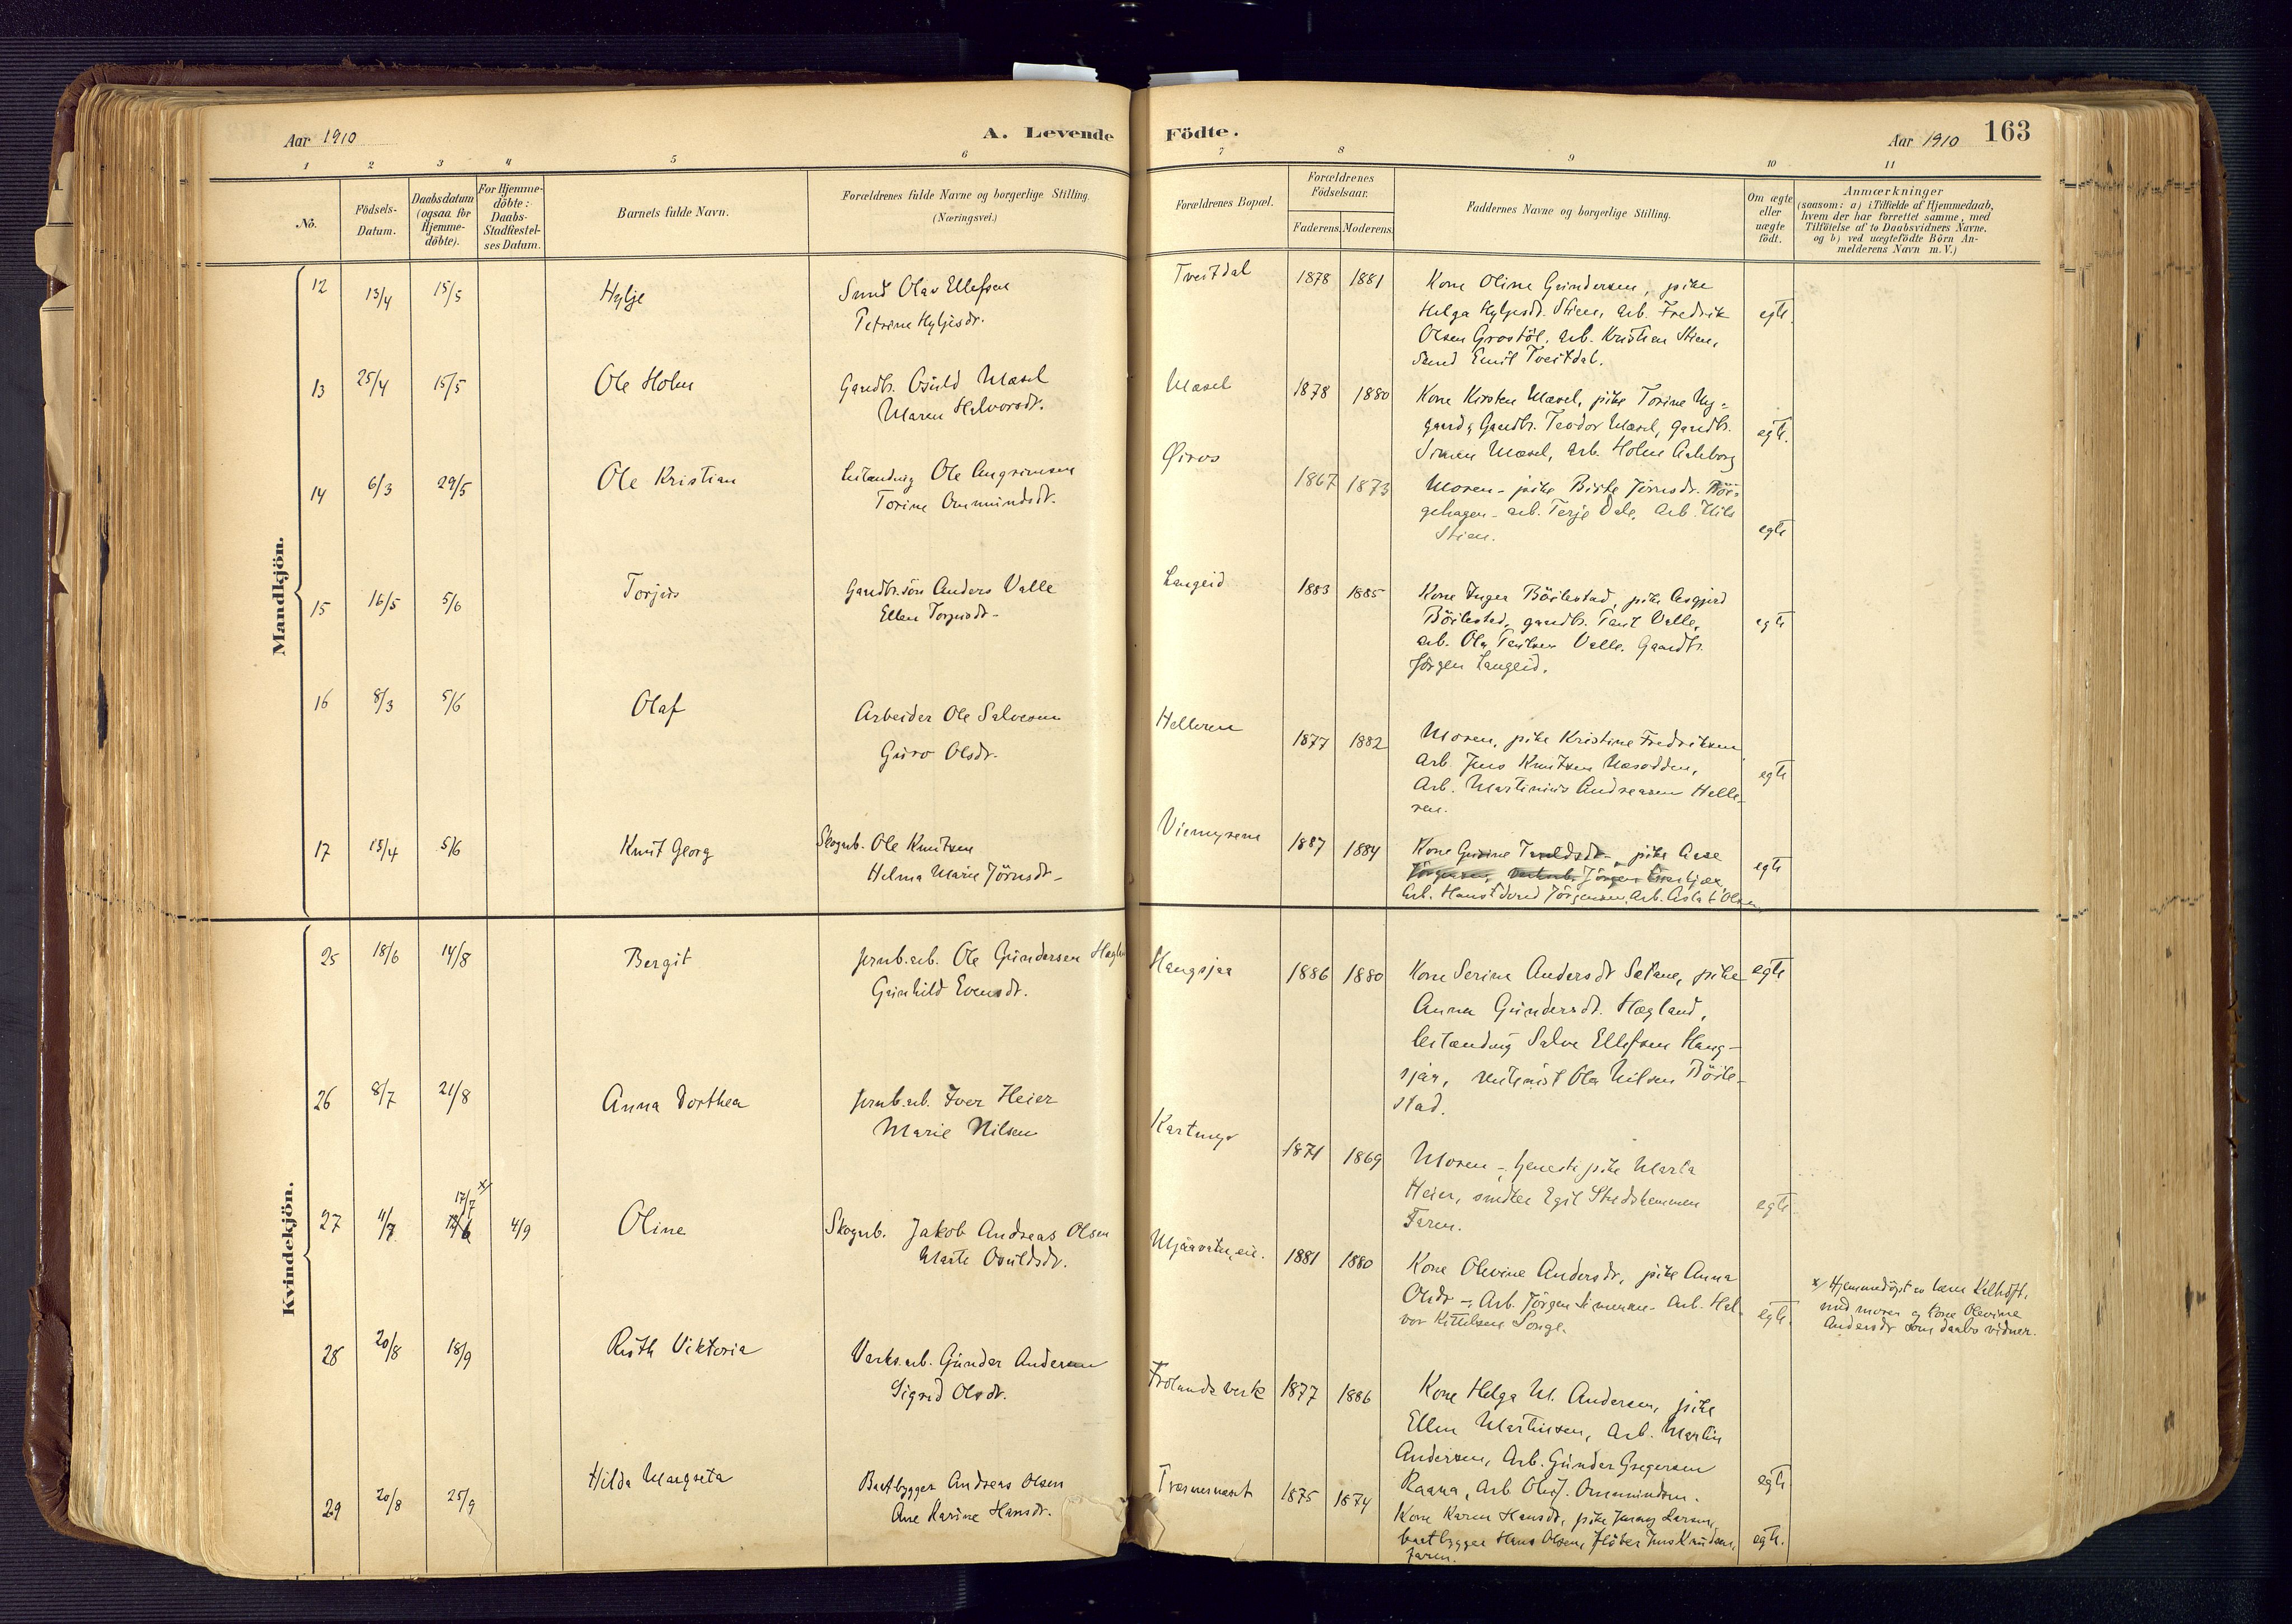 Aar 1910
A. Levende
Födte.
Aar 1910
163
1 2 3 4 5 6 7 8 9 10 11
No.
Födsels-
Datum.
Daabsdatum
(ogsaa for
Hjemme-
döbte).
For Hjemme-
döbte:
Daabs-
Stadfæstel-
ses Datum.
Barnets fulde Navn.
Forældrenes fulde Navne og borgerlige Stilling.
(Næringsvei.)
Forældrenes Bopæl.
Forældrenes
Födselsaar.
Faderens. Moderens.
Faddernes Navne og borgerlige Stilling.
Om ægte
eller
uægte
födt.
Anmærkninger
(saasom: a) i Tilfælde af Hjemmedaab,
hvem der har forrettet samme, med
Tilföielse af to Daabsvidners Navne,
og b) ved uægtefödte Börn An-
melderens Navn m. V.)
Mandkjön.
12 15/4 15/5 Hylje
Smed Olav Ellefsen
Petrine Hyljesdr.
Tveitdal 1878 1881
Kone Oline Gundersen, pike
Helga Hyljesdr. Stien, arb. Fredrik
Olsen Grostöl, arb. Kristian Stien,
Smed Emil Tveitdal.
egte.
13 25/4 15/5 Ole Holm
Gaardbr. Osuld Mæsel
Maren Halvorsdr.
Mæsel 1878 1880
Kone Kirsten Mæsel, pike Torine Ny-
gaard, Gaardbr. Teodor Mæsel, gaardbr.
Simen Mæsel, arb. Holm
egte.
14 6/3 29/5 Ole Kristian
Leilænding Ole Angrimsen
Torine Ommundsdr.
1867 1873
Moren - pike Birte Jörnsdr.
gehagen - arb. Terje Dale, Arb. Nils
Stien.
egte
15 16/5 5/6 Torjus
Gaardbr.sön Anders Valle
Ellen Torjusdr-
Langeid 1883 1885
Kone Inger Böilestad, pike Asgjerd
Böilestad, gaardbr. Tarit Valle,
arb. Ola Taritsen Valle. Gaardbr.
Jörgen Langeid.
egte
16 8/3 5/6 Olaf
Arbeider Ole Salvesen
Guro Olsdr.
Helleren 1877 1882
Moren, pike Kristine Fredriksen,
Arb. Jens Knutsen Næsodden,
Arb. Martinius Andreasen Helle-
ren.
egte
17 15/4 5/6 Knut Georg
Skogarb. Ole Knutsen
Helma Marie Jörnsdr-
Viemyrene 1887 1884
Kone Gurine , pike Aase
Jörgensen, Jörgen
Arb. Jörgensen, Arb. Aslak Olsen
egte
Kvindekjön.
25 18/6 14/8 Bergit
Jernb.arb. Ole Gundersen
Gunhild Evensdr.
Haugsjaa 1886 1880
Kone Serina Andersdr Sætane, pike
Anna Gundersdr. Hægland,
leilænding Salve Ellefsen Haug-
sjaa, Ola Nilsen Böile-
stad.
egte
26 8/7 21/8 Anna Dorthea
Jernb.arb. Iver Heier
Marie Nilsen
Kartmyr 1871 1869
Moren -, tjeneste pike Marta
Heier, smed Egil
Faren.
egte
27 11/7 17/7 x/ 4/9 Oline
Skogarb. Jakob Andreas Olsen
Marte Osuldsdr.
Mjaavatn, eie. 1881 1880
Kone Olevine Andersdr, pike Anna
Olsdr -, Arb. Jörgen Simensen - Arb. Hal-
vor Kittelsen Songe.
egte.
x/ Hjemmedöpt av lærer
med moren og kone Olevine
Andersdr som daabsvidner.
28 20/8 18/9 Ruth Viktoria
Verks.arb. Gunder Andersen
Sigrid Olsdr.
Frolands verk 1877 1886
Kone Helga M. Andersen, pike
Ellen Martinsen, Arb. Martin
Andersen, Arb. Gunder Gregersen
Raana, Arb Olaf Ommundsen.
egte
29 20/8 25/9 Hilda Margreta
Baatbygger Andreas Olsen
Ane Karine Hansdr.
1875 1874
Kone Karen Hansdr, pike Jenny Larsen,
baatbygger Hans Olsen, flöter Jens Knudsen,
faren.
egte.